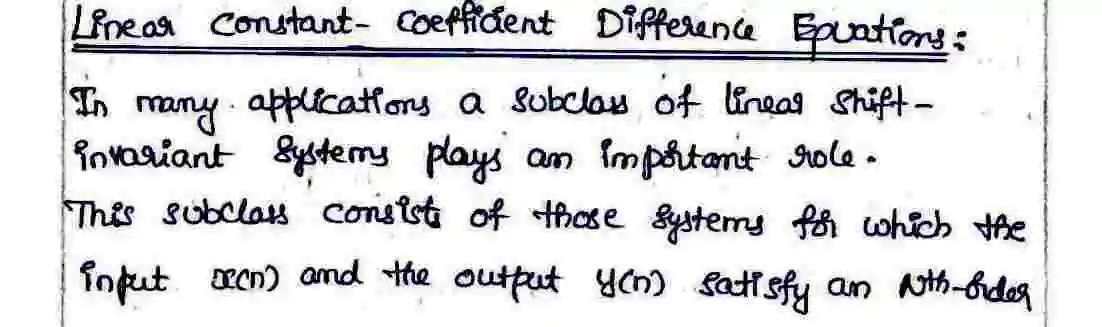 Linear Constant- Coefficient Difference Equations:
In many applications a subclass of linear shift-
invariant systems plays an important role.
This subclass consists of those systems for which the
input x(n) and the output y(n) satisfy an Nth-order